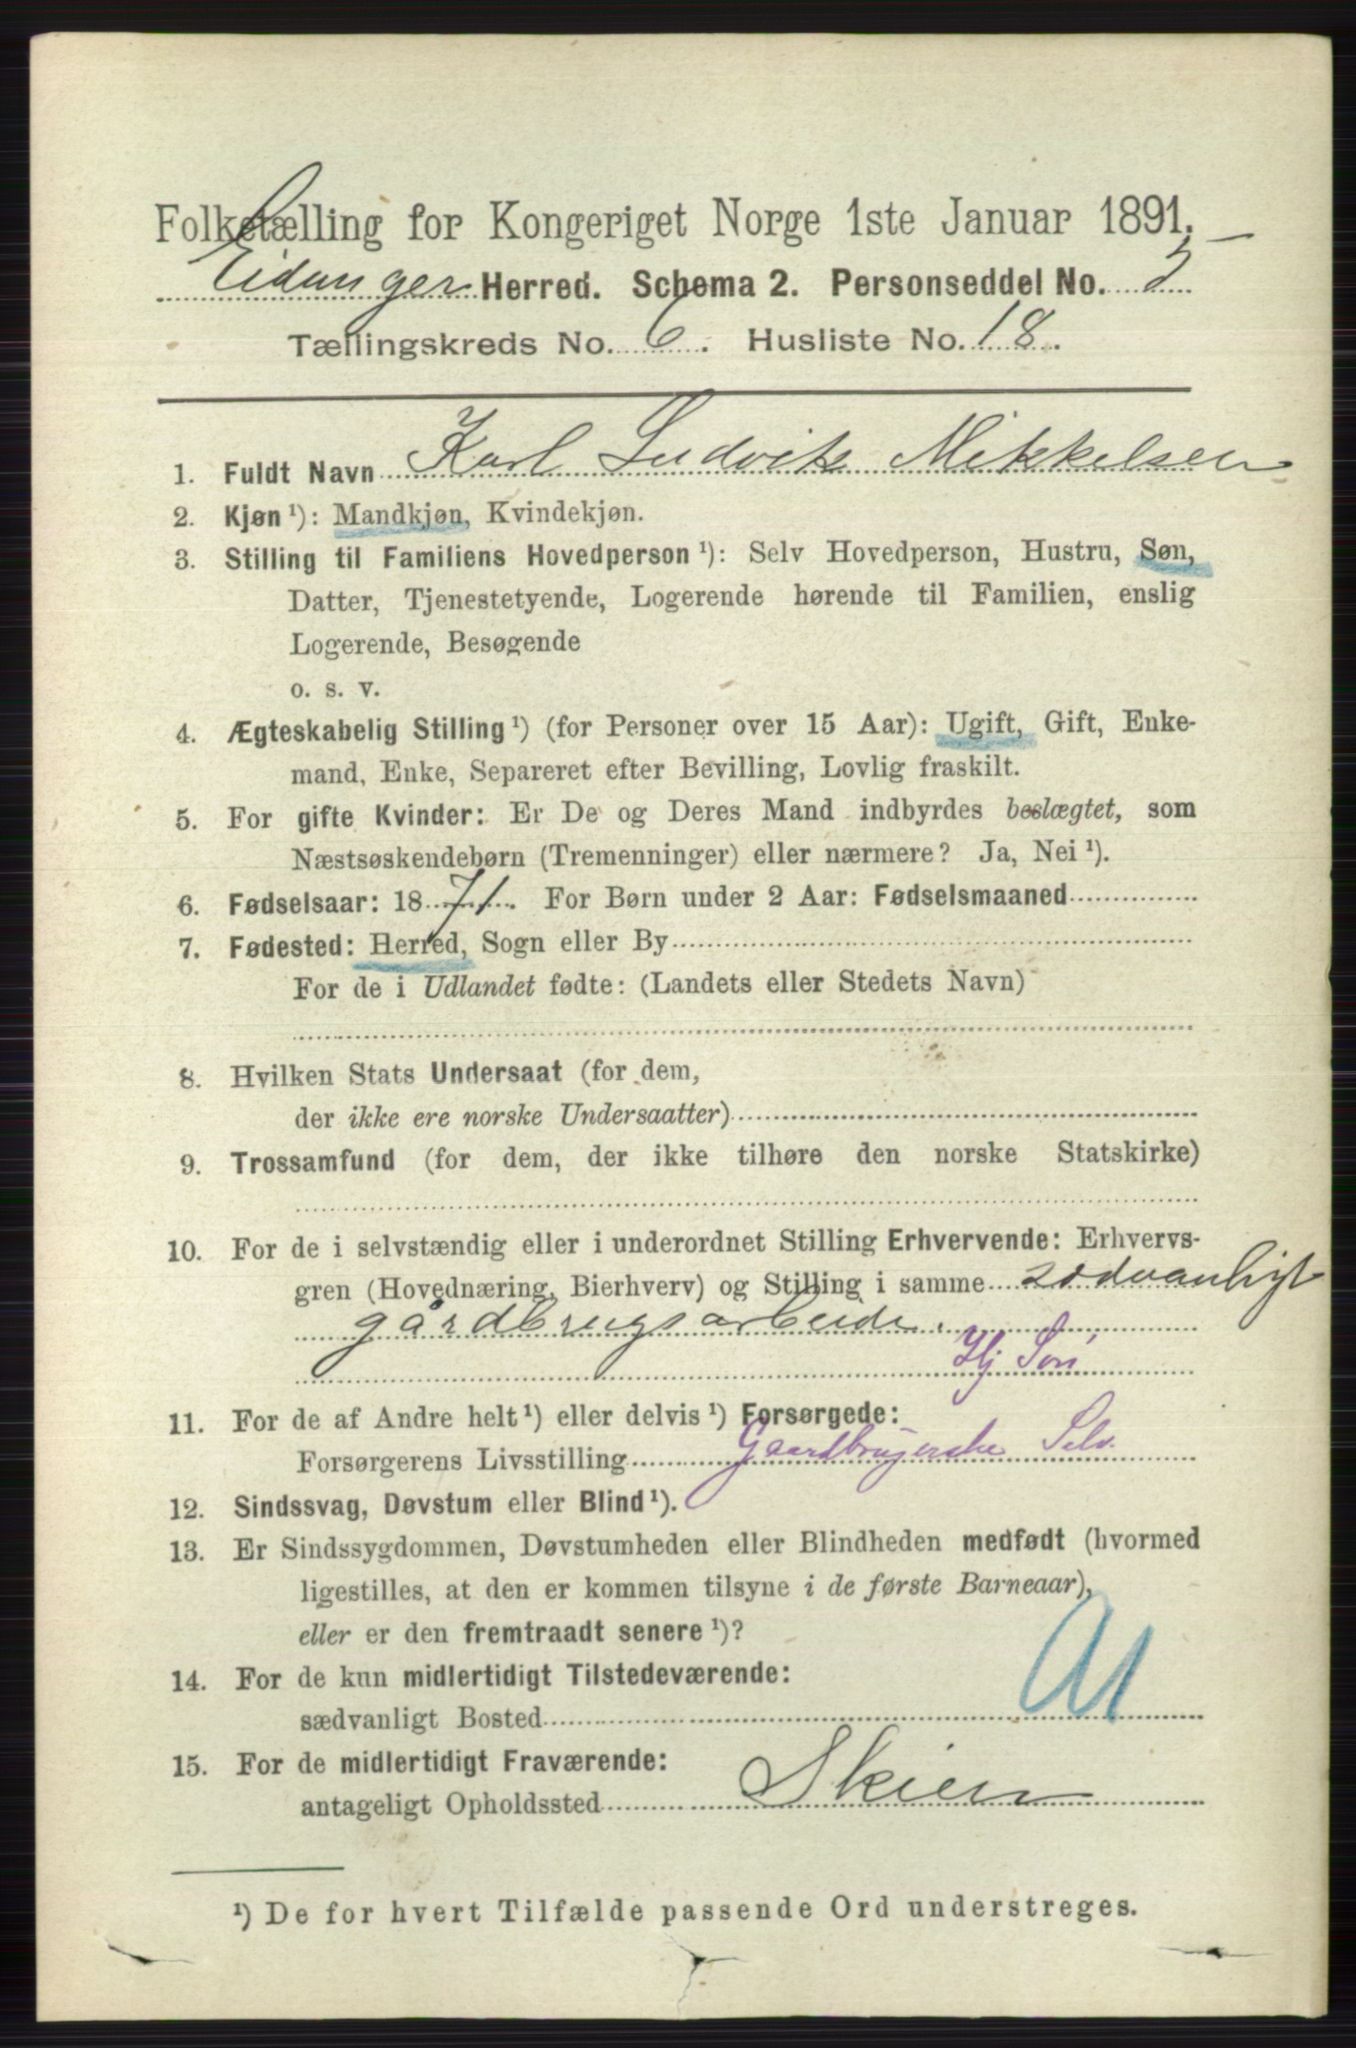 Folketælling for Kongeriget Norge 1ste Januar 1891.
Eidanger Herred. Schema 2. Personseddel No. 5
Tællingskreds No. 6. Husliste No. 18.
1. Fuldt Navn Karl Ludvik Mikkelsen
2. Kjøn ¹): Mandkjøn, Kvindekjøn.
3. Stilling til Familiens Hovedperson ¹): Selv Hovedperson, Hustru, Søn,
Datter, Tjenestetyende, Logerende hørende til Familien, enslig
Logerende, Besøgende
o. s. v.
4. Ægteskabelig Stilling ¹) (for Personer over 15 Aar): Ugift, Gift, Enke-
mand, Enke, Separeret efter Bevilling, Lovlig fraskilt.
5. For gifte Kvinder: Er De og Deres Mand indbyrdes beslægtet, som
Næstsøskendebørn (Tremenninger) eller nærmere? Ja, Nei ¹).
6. Fødselsaar: 1871. For Børn under 2 Aar: Fødselsmaaned
7. Fødested: Herred, Sogn eller By
For de i Udlandet fødte: (Landets eller Stedets Navn)
8. Hvilken Stats Undersaat (for dem,
der ikke ere norske Undersaatter)
9. Trossamfund (for dem, der ikke tilhøre den norske Statskirke)
10. For de i selvstændig eller i underordnet Stilling Erhvervende: Erhvervs-
gren (Hovednæring, Bierhverv) og Stilling i samme sædvanligt
gårdbrugsarbeide.
Hj Søn
11. For de af Andre helt ¹) eller delvis ¹) Forsørgede:
Forsørgerens Livsstilling Gaardbrugerske Selv.
12. Sindssvag, Døvstum eller Blind ¹).
13. Er Sindssygdommen, Døvstumheden eller Blindheden medfødt (hvormed
ligestilles, at den er kommen tilsyne i de første Barneaar),
eller er den fremtraadt senere ¹)?
14. For de kun midlertidigt Tilstedeværende:
sædvanligt Bosted
15. For de midlertidigt Fraværende:
antageligt Opholdssted Skien
¹) De for hvert Tilfælde passende Ord understreges.